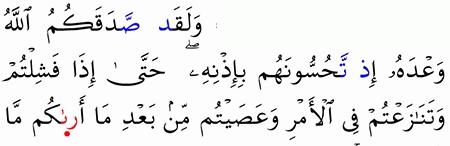 وَلَقَد صَّدَقَكُمُ ٱللَّهُ
وَعْدَهُۥٓ إِذ تَّحُسُّونَهُم بِإِذْنِهِۦۖ حَتَّىٰٓ إِذَا فَشِلْتُمْ
وَتَنَٰزَعْتُمْ فِى ٱلْأَمْرِ وَعَصَيْتُم مِّنۢ بَعْدِ مَآ أَرىٰكُم مَّا